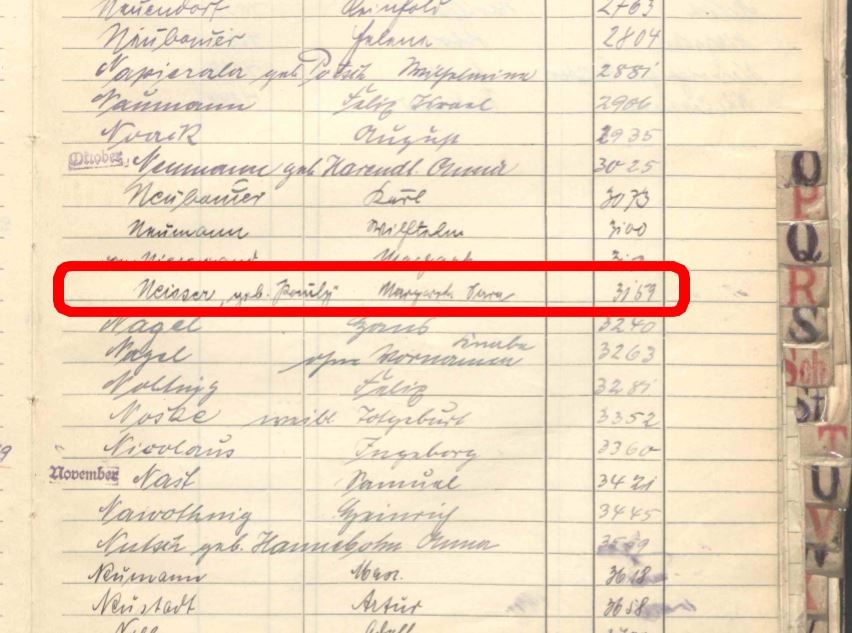 Neuendorf Reinhold 2763
Neubauer Helene 2804
Napierala geb Potsch Wilhelmine 2881
Naumann Felix Israel 2906
Noack August 2935
Oktober. Neumann geb Harendt Anna 3025
Neubauer Karl 3073
Neumann Wilhelm 3100
Neisser, geb. Pauly Margareth Sara 3159
Nagel Hans 3240
Nagel ohne Vornamen Knabe 3263
Nolting Felix 3281
Noske weibl Totgeburt 3352
Nicolaus Ingeborg 3360
November Nast Samuel 3421
Nawothnig Heinrich 3445
Nutsch geb. Hannebohn Anna
Neumann Max. 3618
Neustadt Artur 3658
O
P
Q
R
S
Sch
St
T
U
V